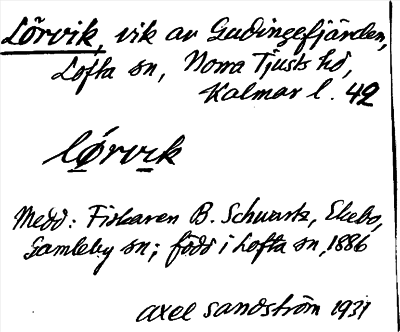 Lörvik, vik av Gudingefjärden,
Lofta sn, Norra Tjusts hd,
Kalmar l. 42
lǿrvik
Medd: Fiskaren B. Schwartz, Ekebo,
Gamleby sn; född i Lofta sn, 1886
Axel Sandström 1931